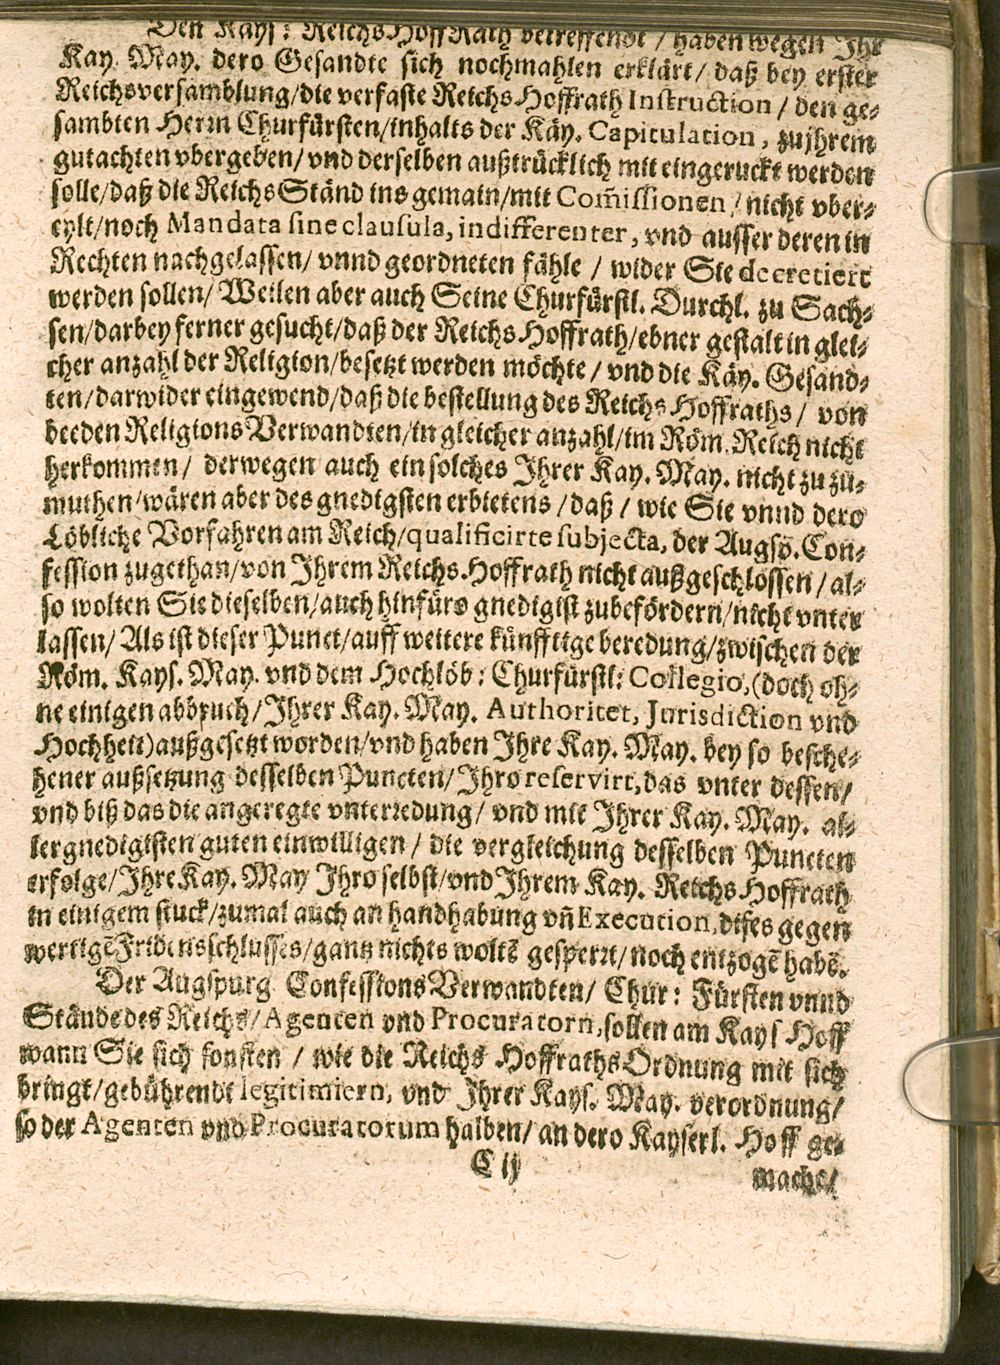 Den Kays: ReichsHoffRath betreffendt / haben wegen Ihr
Kay. May. dero Gesandte sich nochmahlen erklärt / daß bey erster
Reichsversamblung/die verfaste Reichs Hoffrath Instruction / den ge-
sambten Herrn Churfürsten/inhalts der Käy. Capitulation, zu jhrem
gutachten vbergeben/ vnd derselben außtrücklich mit eingeruckt werden
solle/daß die ReichsStänd ins gemain/mit Com̃issionen / nicht vber-
eylt/noch Mandata sine clausula, indifferenter, vnd ausser deren in
Rechten nachgelassen/ vnnd geordneten fähle / wider Sie decretiert
werden sollen/ Weilen aber auch Seine Churfürstl. Durchl. zu Sach-
sen/darbey ferner gesucht/daß der Reichs Hoffrath/ebner gestalt in glei-
cher anzahl der Religion/besetzt werden möchte / vnd die Käy. Gesand-
ten/darwider eingewend/daß die bestellung des Reichs Hoffraths / von
beeden Religions Verwandten/in gleicher anzahl/im Röm. Reich nicht
herkommen / derwegen auch ein solches Ihrer Kay. May. nicht zu zu-
muthen/wären aber des gnedigsten erbietens / daß / wie Sie vnnd dero
Löbliche Vorfahren am Reich/qualificirte subjecta, der Augsp. Con-
fession zugethan/von Ihrem Reichs Hoffrath nicht außgeschlossen / al-
so wolten Sie dieselben/auch hinfüro gnedigist zubefördern/nicht vnter
lassen/ Als ist dieser Punct/auff weitere künfftige beredung/zwischen der
Röm. Kays. May. vnd dem Hochlöb: Churfürstl: Collegio,(doch oh-
ne einigen abbruch/ Ihrer Kay. May. Authoritet, Jurisdiction vnd
Hochheit)außgesetzt worden/vnd haben Ihre Kay. May. bey so besche-
hener außsetzung desselben Puncten/ Ihro reservirt, das vnter dessen/
vnd biß das die angeregte vnterredung/ vnd mit Ihrer Kay. May. al-
lergnedigisten guten einwilligen / die vergleichung desselben Puncten
erfolge/Ihre Kay. May Ihro selbst/vnd Ihrem Kay. Reichs Hoffrath
in einigem stuck/zumal auch an handhabung vñ Execution, dises gegen
wertigē Fridensschlusses/gantz nichts woltē gesperrt/noch entzogē habē.
Der Augspurg. Confessions Verwandten/ Chur: Fürsten vnnd
Stände des Reichs/ Agenten vnd Procuratorn, sollen am Kays Hoff
wann Sie sich sonsten / wie die Reichs HoffrathsOrdnung mit sich
bringt/gebührendt legitimiern, vnd Ihrer Kays. May. verordnung/
so der Agenten vnd Procuratorum halben/ an dero Kayserl. Hoff ge-
C ij
macht/